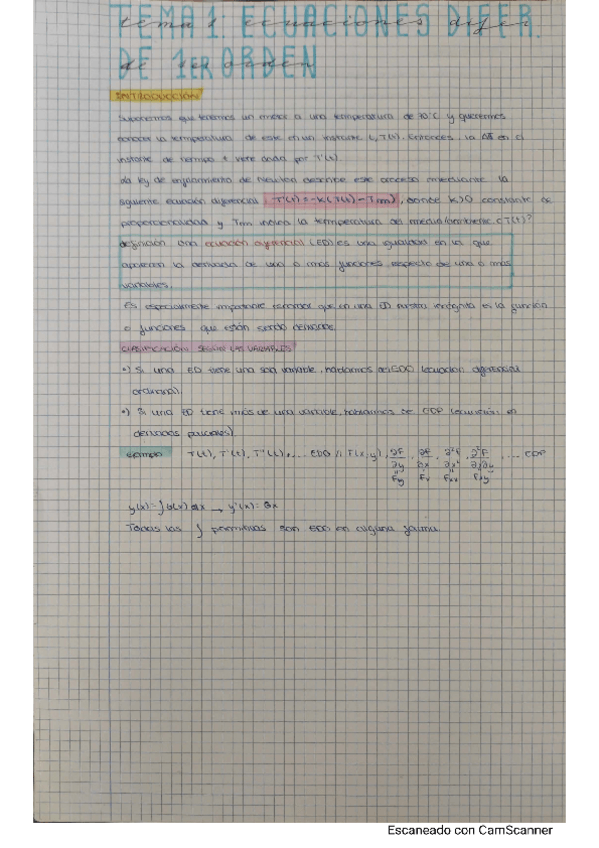 TEMA 1: ECUACIONES DIFER.
DE 1ER ORDEN
INTRODUCCIÓN
Supongamos que tenemos un motor a una temperatura de 70°C y queremos
conocer la temperatura de este en un instante t, T(t). Entonces, la ΔT en el
instante de tiempo t vere dada por T'(t).
La ley de enfriamiento de Newton describe este proceso mediante la
siguiente ecuación diferencial: T'(t) = -k(T(t) - Tm), donde k>0 constante de
proporcionalidad y Tm indica la temperatura del medio/ambiente. c T(t)?
definición Una ecuación diferencial (ED) es una igualdad en la que
aparecen la derivada de una o más funciones respecto de una o más
variables.
Es especialmente importante que en una ED nuestra incógnita es la función
o funciones que están siendo derivadas.
CLASIFICACIÓN SEGÚN LAS VARIABLES
•) Si una ED tiene una sola variable, hablamos de EDO (ecuación diferencial
ordinaria).
•) Si una ED tiene más de una variable, hablamos de EDP (ecuación en
derivadas parciales)
ejemplo T(t), T'(t), T''(t), ... EDO // F(x,y), ∂F/∂y, ∂F/∂x, ∂²F/∂x², ∂²F/∂x∂y, ... EDP
Fy Fx Fxx Fxy
y(x) = ∫ dx → y'(x) =
Todas las ∫ primitivas son EDO en alguna forma.
Escaneado con CamScanner